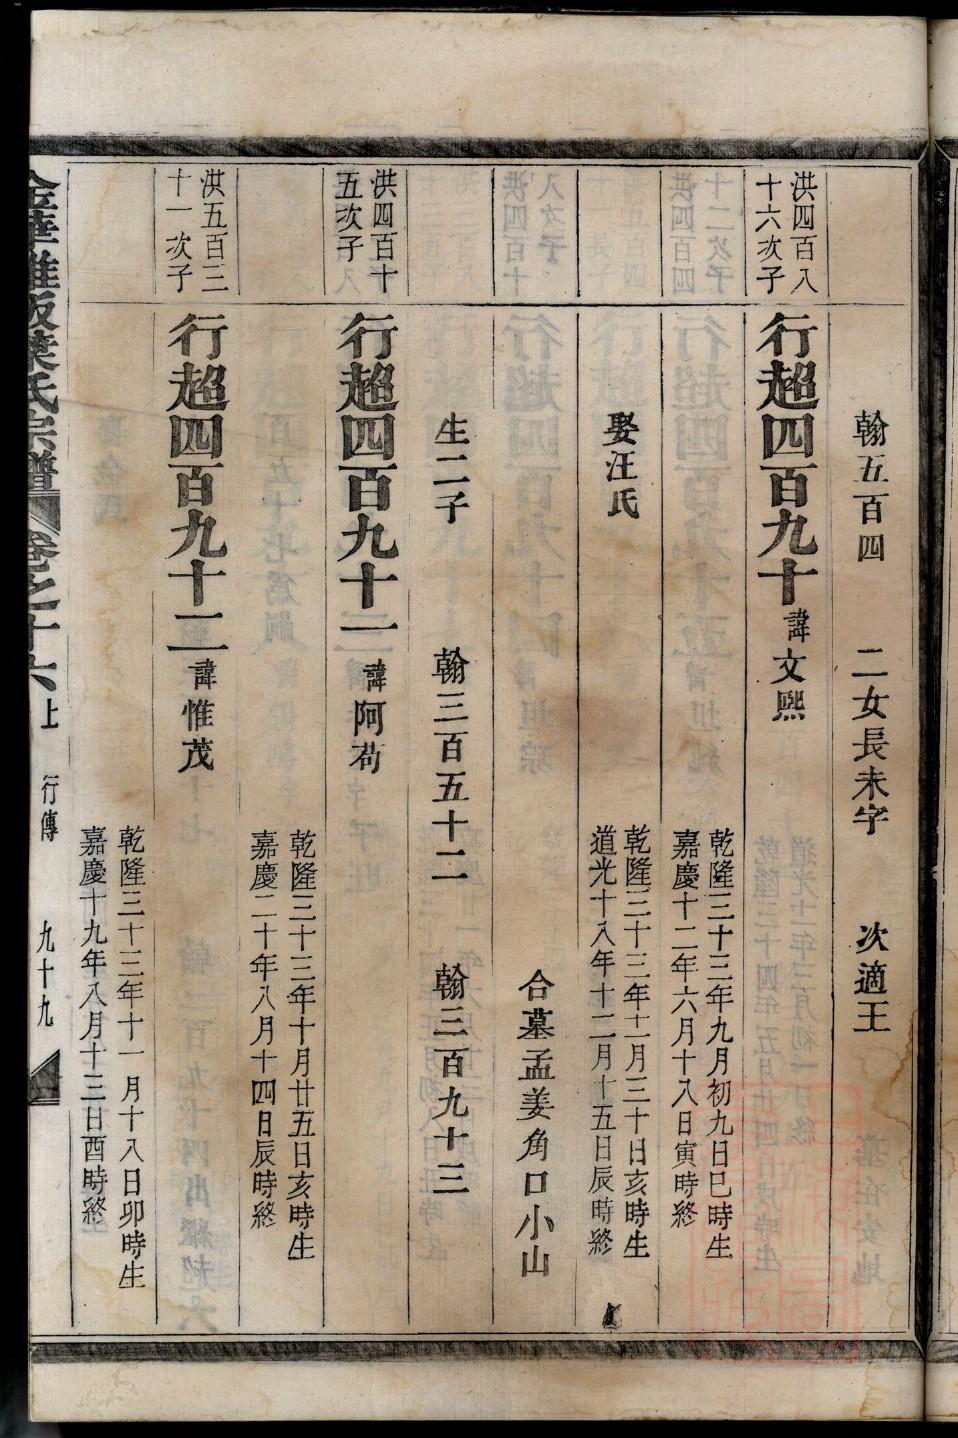 翰五百四　二女長未字　次適王
洪四百八
十六次子
行超四百九十 諱文熙
乾隆三十三年九月初九日巳時生
嘉慶十二年六月十八日寅時終
娶汪氏
乾隆三十三年十二月三十日亥時生
道光十八年十二月十五日辰時終
合墓孟姜角口小山
生二子　翰三百五十二　翰三百九十三
洪四百十
五次子
行超四百九十一 諱阿苟
乾隆三十三年十月廿五日亥時生
嘉慶二十年八月十四日辰時終
洪五百三
十一次子
行超四百九十二 諱惟茂
乾隆三十三年十一月十八日卯時生
嘉慶十九年八月十三日酉時終
葉氏宗譜 卷之十六上 行傳 九十九